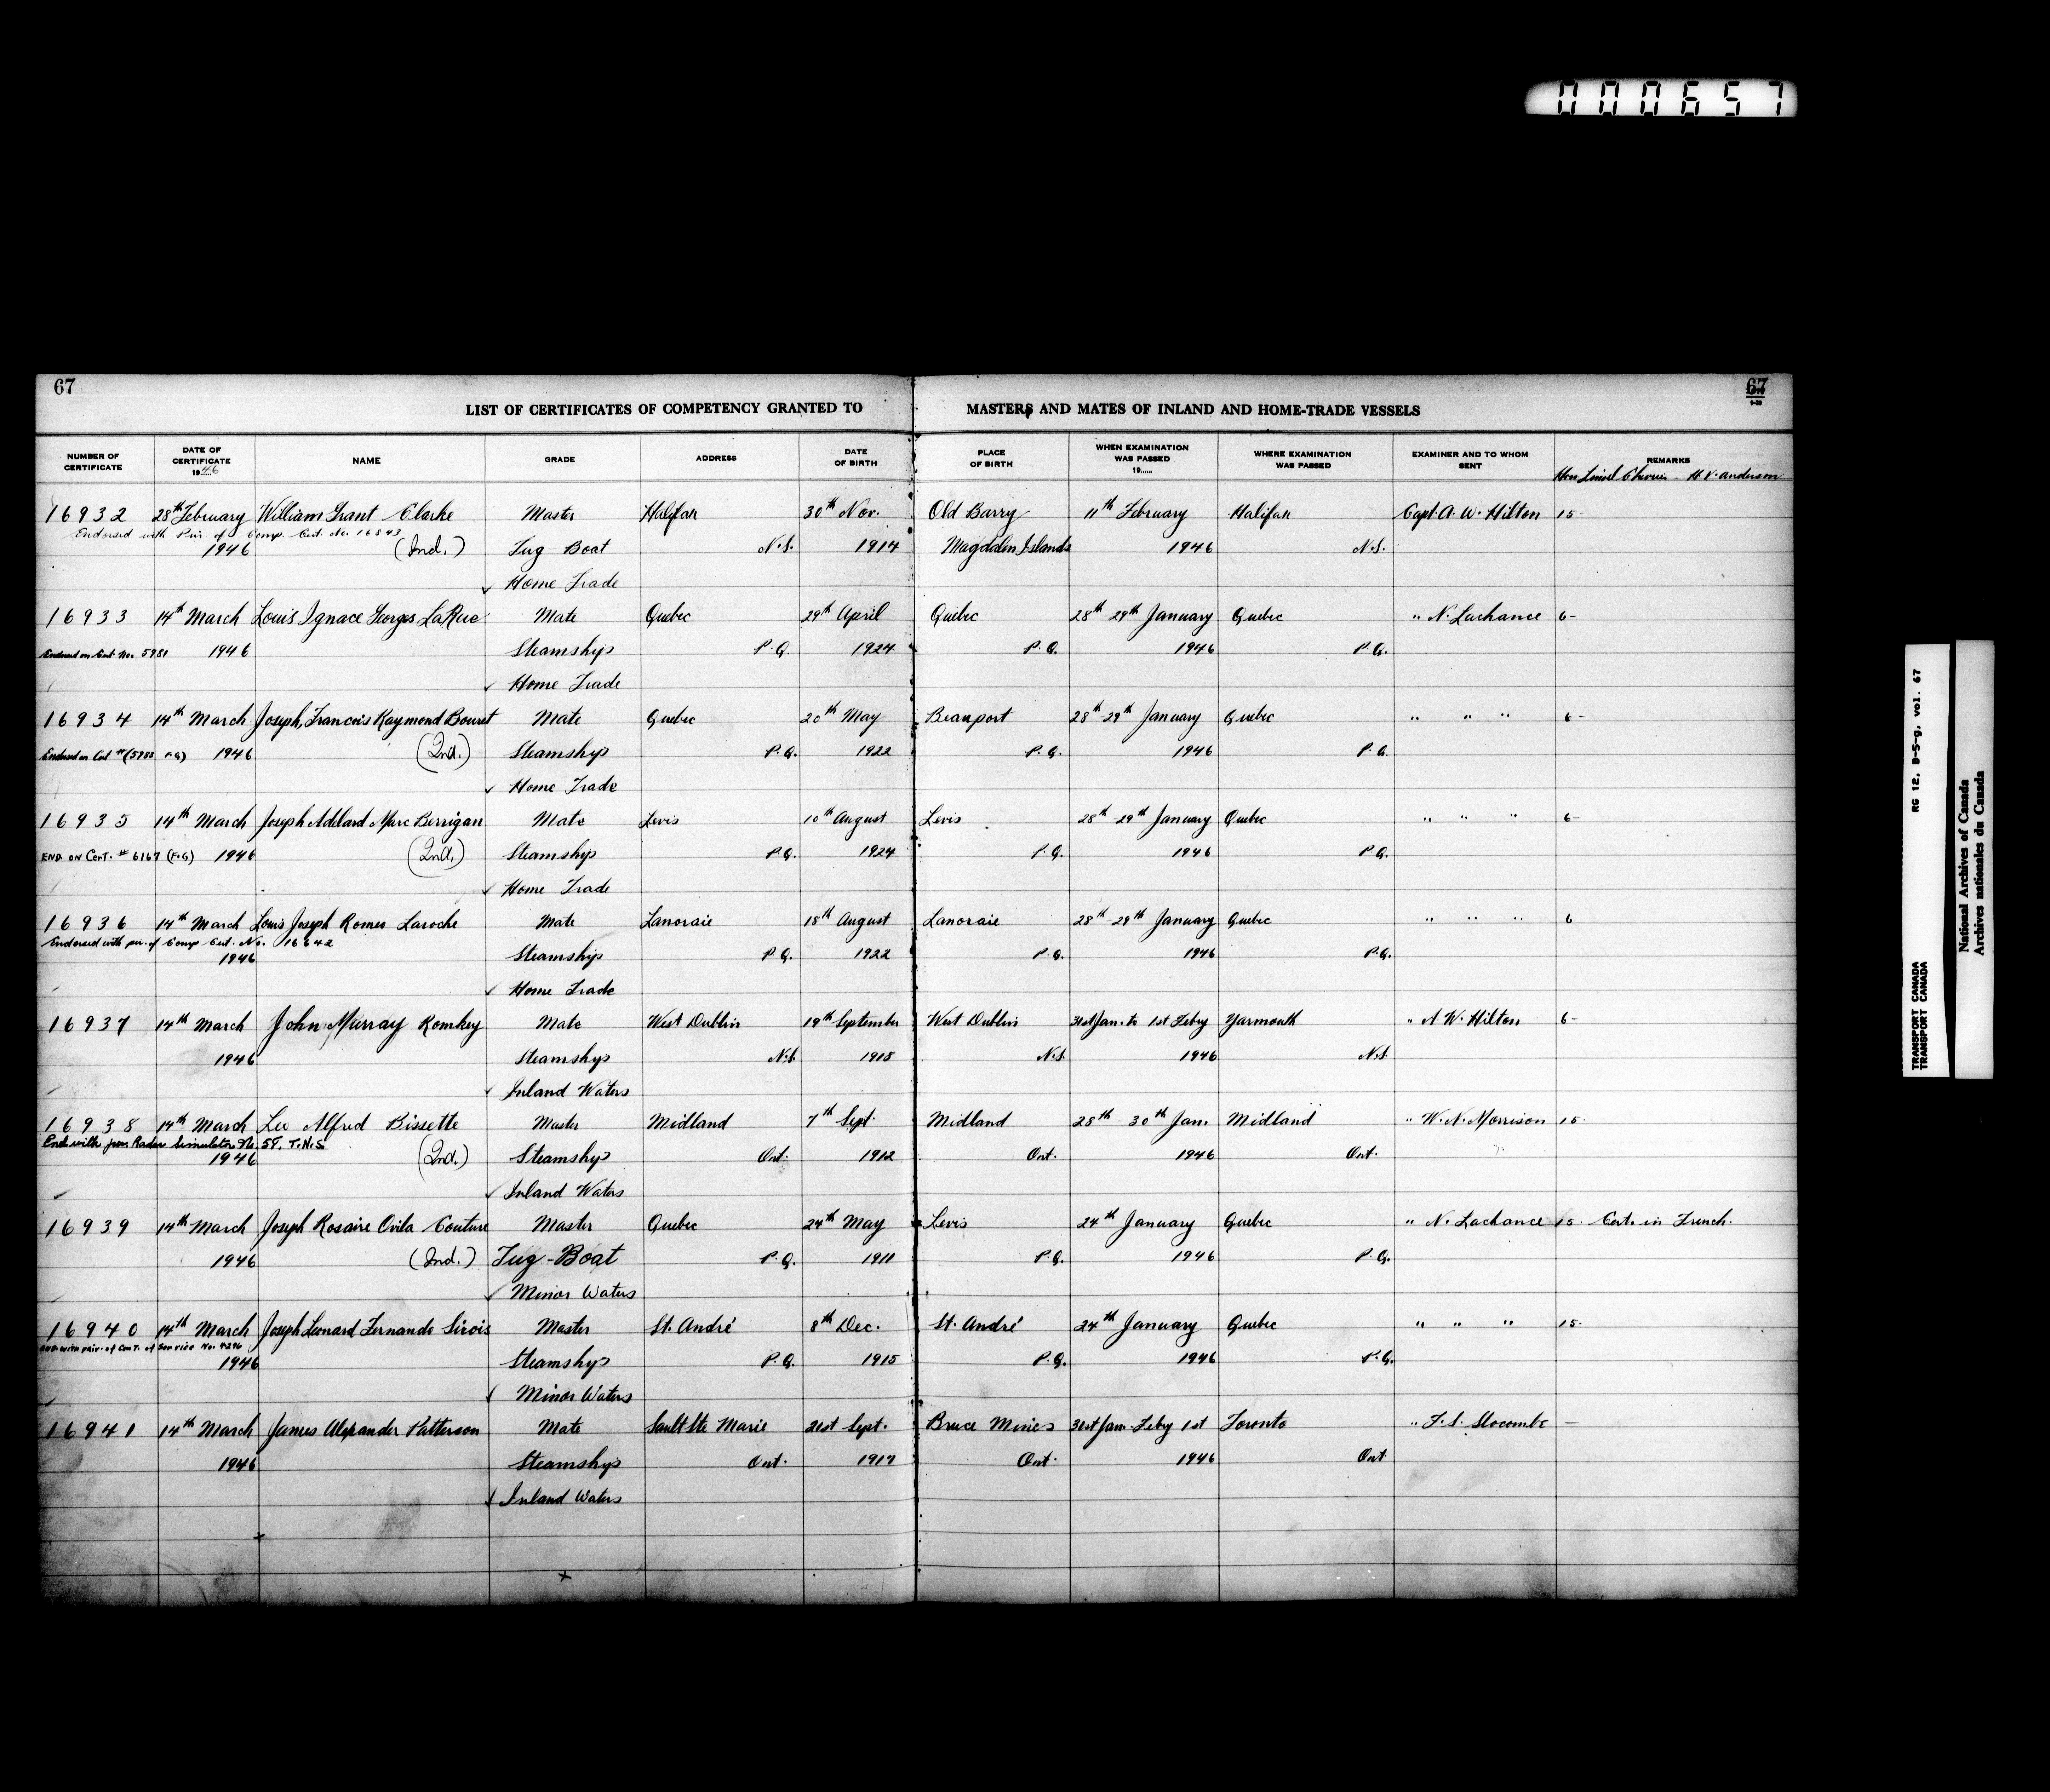 000657
67
67
9-39
LIST OF CERTIFICATES OF COMPETENCY GRANTED TO MASTERS AND MATES OF INLAND AND HOME-TRADE VESSELS
NUMBER OF CERTIFICATE DATE OF CERTIFICATE 1946 NAME GRADE ADDRESS DATE OF BIRTH PLACE OF BIRTH WHEN EXAMINATION WAS PASSED 19..... WHERE EXAMINATION WAS PASSED EXAMINER AND TO WHOM SENT REMARKS
Hon Lionel Chevrier - H.V. Anderson
16932 28th February William Grant Clarke Master Halifax 30th Nov. Old Barry 11th February Halifax Capt. A. W. Hilton 15-
Endorsed with Priv. of Comp. Cert. No. 16843
1946 (Ind.) Tug Boat N.S. 1914 Magdalen Islands 1946 N.S.
Home Trade
16933 14th March Louis Ignace Georges LaRue Mate Quebec 29th April Quebec 28th-29th January Quebec " N. Lachance 6-
Endorsed on Cert. No. 5981 1946 Steamships P.Q. 1924 P.Q. 1946 P.Q.
Home Trade
16934 14th March Joseph, Francois Raymond Bouret Mate Quebec 20th May Beauport 28th-29th January Quebec " " " 6-
Endorsed on Cert # (5988 F.G) 1946 (Ind.) Steamships P.Q. 1922 P.Q. 1946 P.Q.
Home Trade
16935 14th March Joseph Adelard Marc Berrigan Mate Levis 10th August Levis 28th-29th January Quebec " " " 6-
END. ON CerT. # 6167 (F.G) 1946 (Ind.) Steamships P.Q. 1924 P.Q. 1946 P.Q.
Home Trade
16936 14th March Louis Joseph Romeo Laroche Mate Lanoraie 18th August Lanoraie 28th-29th January Quebec " " " 6
Endorsed with priv. of Comp Cert. No. 16642
1946 Steamships P.Q. 1922 P.Q. 1946 P.Q.
Home Trade
16937 14th March John Murray Romkey Mate West Dublin 19th September West Dublin 31st Jan. to 1st Febry Yarmouth " A. W. Hilton 6-
1946 Steamships N.S. 1918 N.S. 1946 N.S.
Inland Waters
16938 14th March Leo Alfred Bissette Master Midland 7th Sept. Midland 28th - 30th Jan. Midland " W. N. Morrison 15-
Radar Simulator No. 58. T.N.S
1946 (Ind.) Steamships Ont. 1912 Ont. 1946 Ont.
Inland Waters
16939 14th March Joseph Rosaire Ovila Couture Master Quebec 24th May Levis 24th January Quebec " N. Lachance 15- Cert. in French.
1946 (Ind.) Tug-Boat P.Q. 1911 P.Q. 1946 P.Q.
Minor Waters
16940 14th March Joseph Leonard Fernando Sirois Master St. André 8th Dec. St. André 24th January Quebec " " " 15-
END. with priv. of CerT. of Service No. 9296
1946 Steamships P.Q. 1915 P.Q. 1946 P.Q.
Minor Waters
16941 14th March James Alexander Patterson Mate Sault Ste Marie 21st Sept. Bruce Mines 31st Jan-Feby 1st Toronto " F. S. Slocombe -
1946 Steamships Ont. 1917 Ont. 1946 Ont
Inland Waters
TRANSPORT CANADA RG 12, B-5-g, vol. 67
TRANSPORT CANADA
National Archives of Canada
Archives nationales du Canada